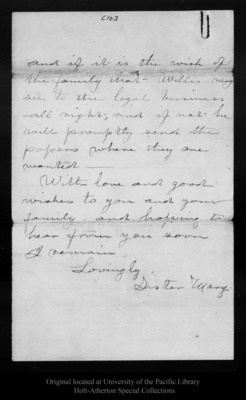 [10]
and if it is the wish of
the family that Willis may
see to the legal business
all right, and if not he
will promptly send the
papers where they are
wanted —
With love and good
wishes to you and your
family and hoping to
hear from you soon
I remain,
Lovingly,
Sister Mary.
Original located at University of the Pacific Library
Holt-Atherton Special Collections